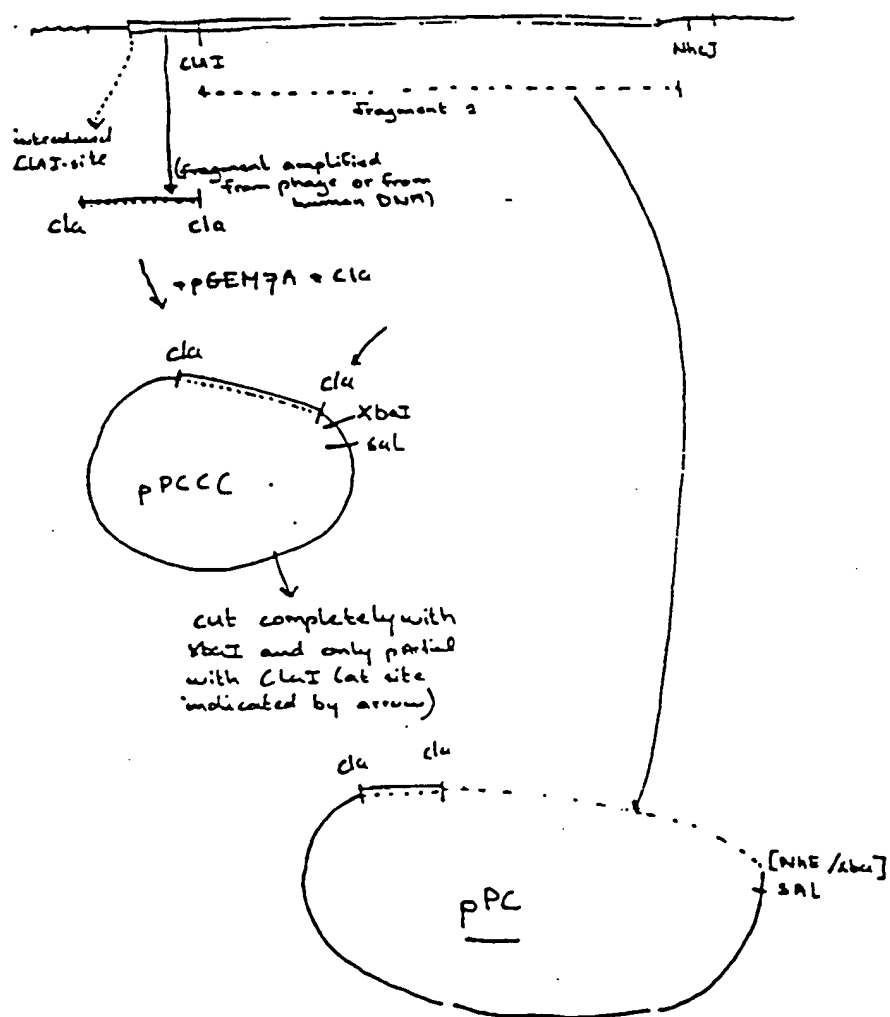 ClaI
NheI
fragment 2
introduced
ClAI-site
(fragment amplified
from phage or from
human DNA)
cla
cla
+pGEM7A + cla
cla
cla
XbaI
sal
pPCCC
cut completely with
XbaI and only partial
with ClaI (at site
indicated by arrow)
cla
cla
[NhE/Xba]
SAL
pPC